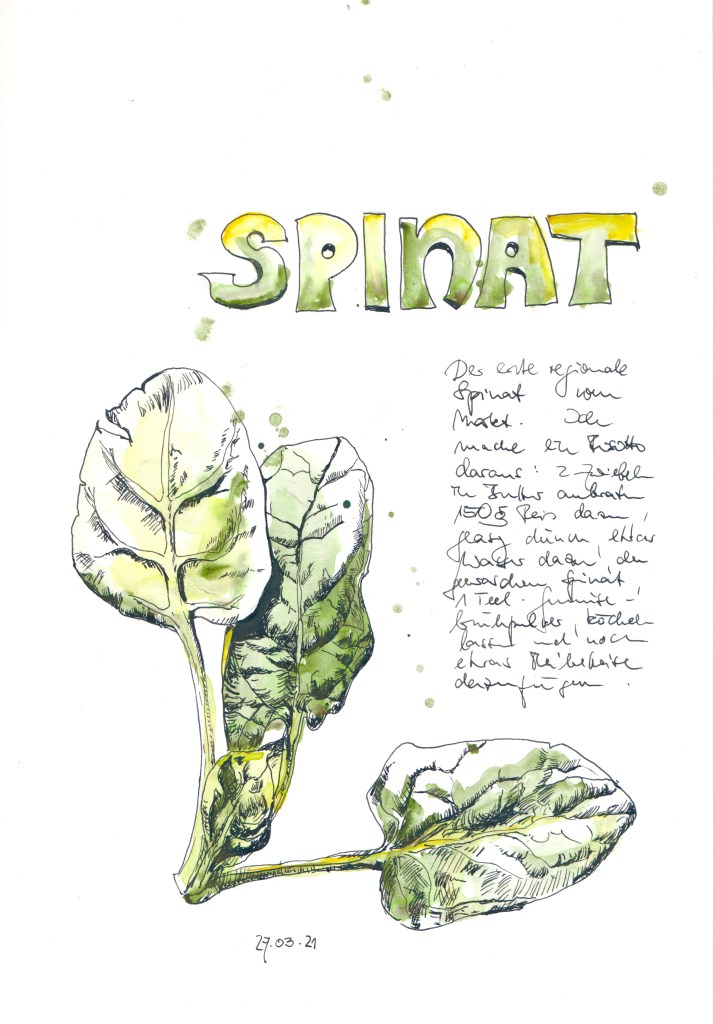 SPINAT
Der erste regionale
Spinat vom
Markt. Ich
mache ein Risotto
daraus: 2 Zwiebeln
in Butter anbraten
150g Reis dazu,
etwas
Wasser dazu, den
gewaschen Spinat,
1 Teel. Gemüse-
brühpulver, köcheln
lassen und noch
etwas Reibekäse
dazufügen.
27.03.21